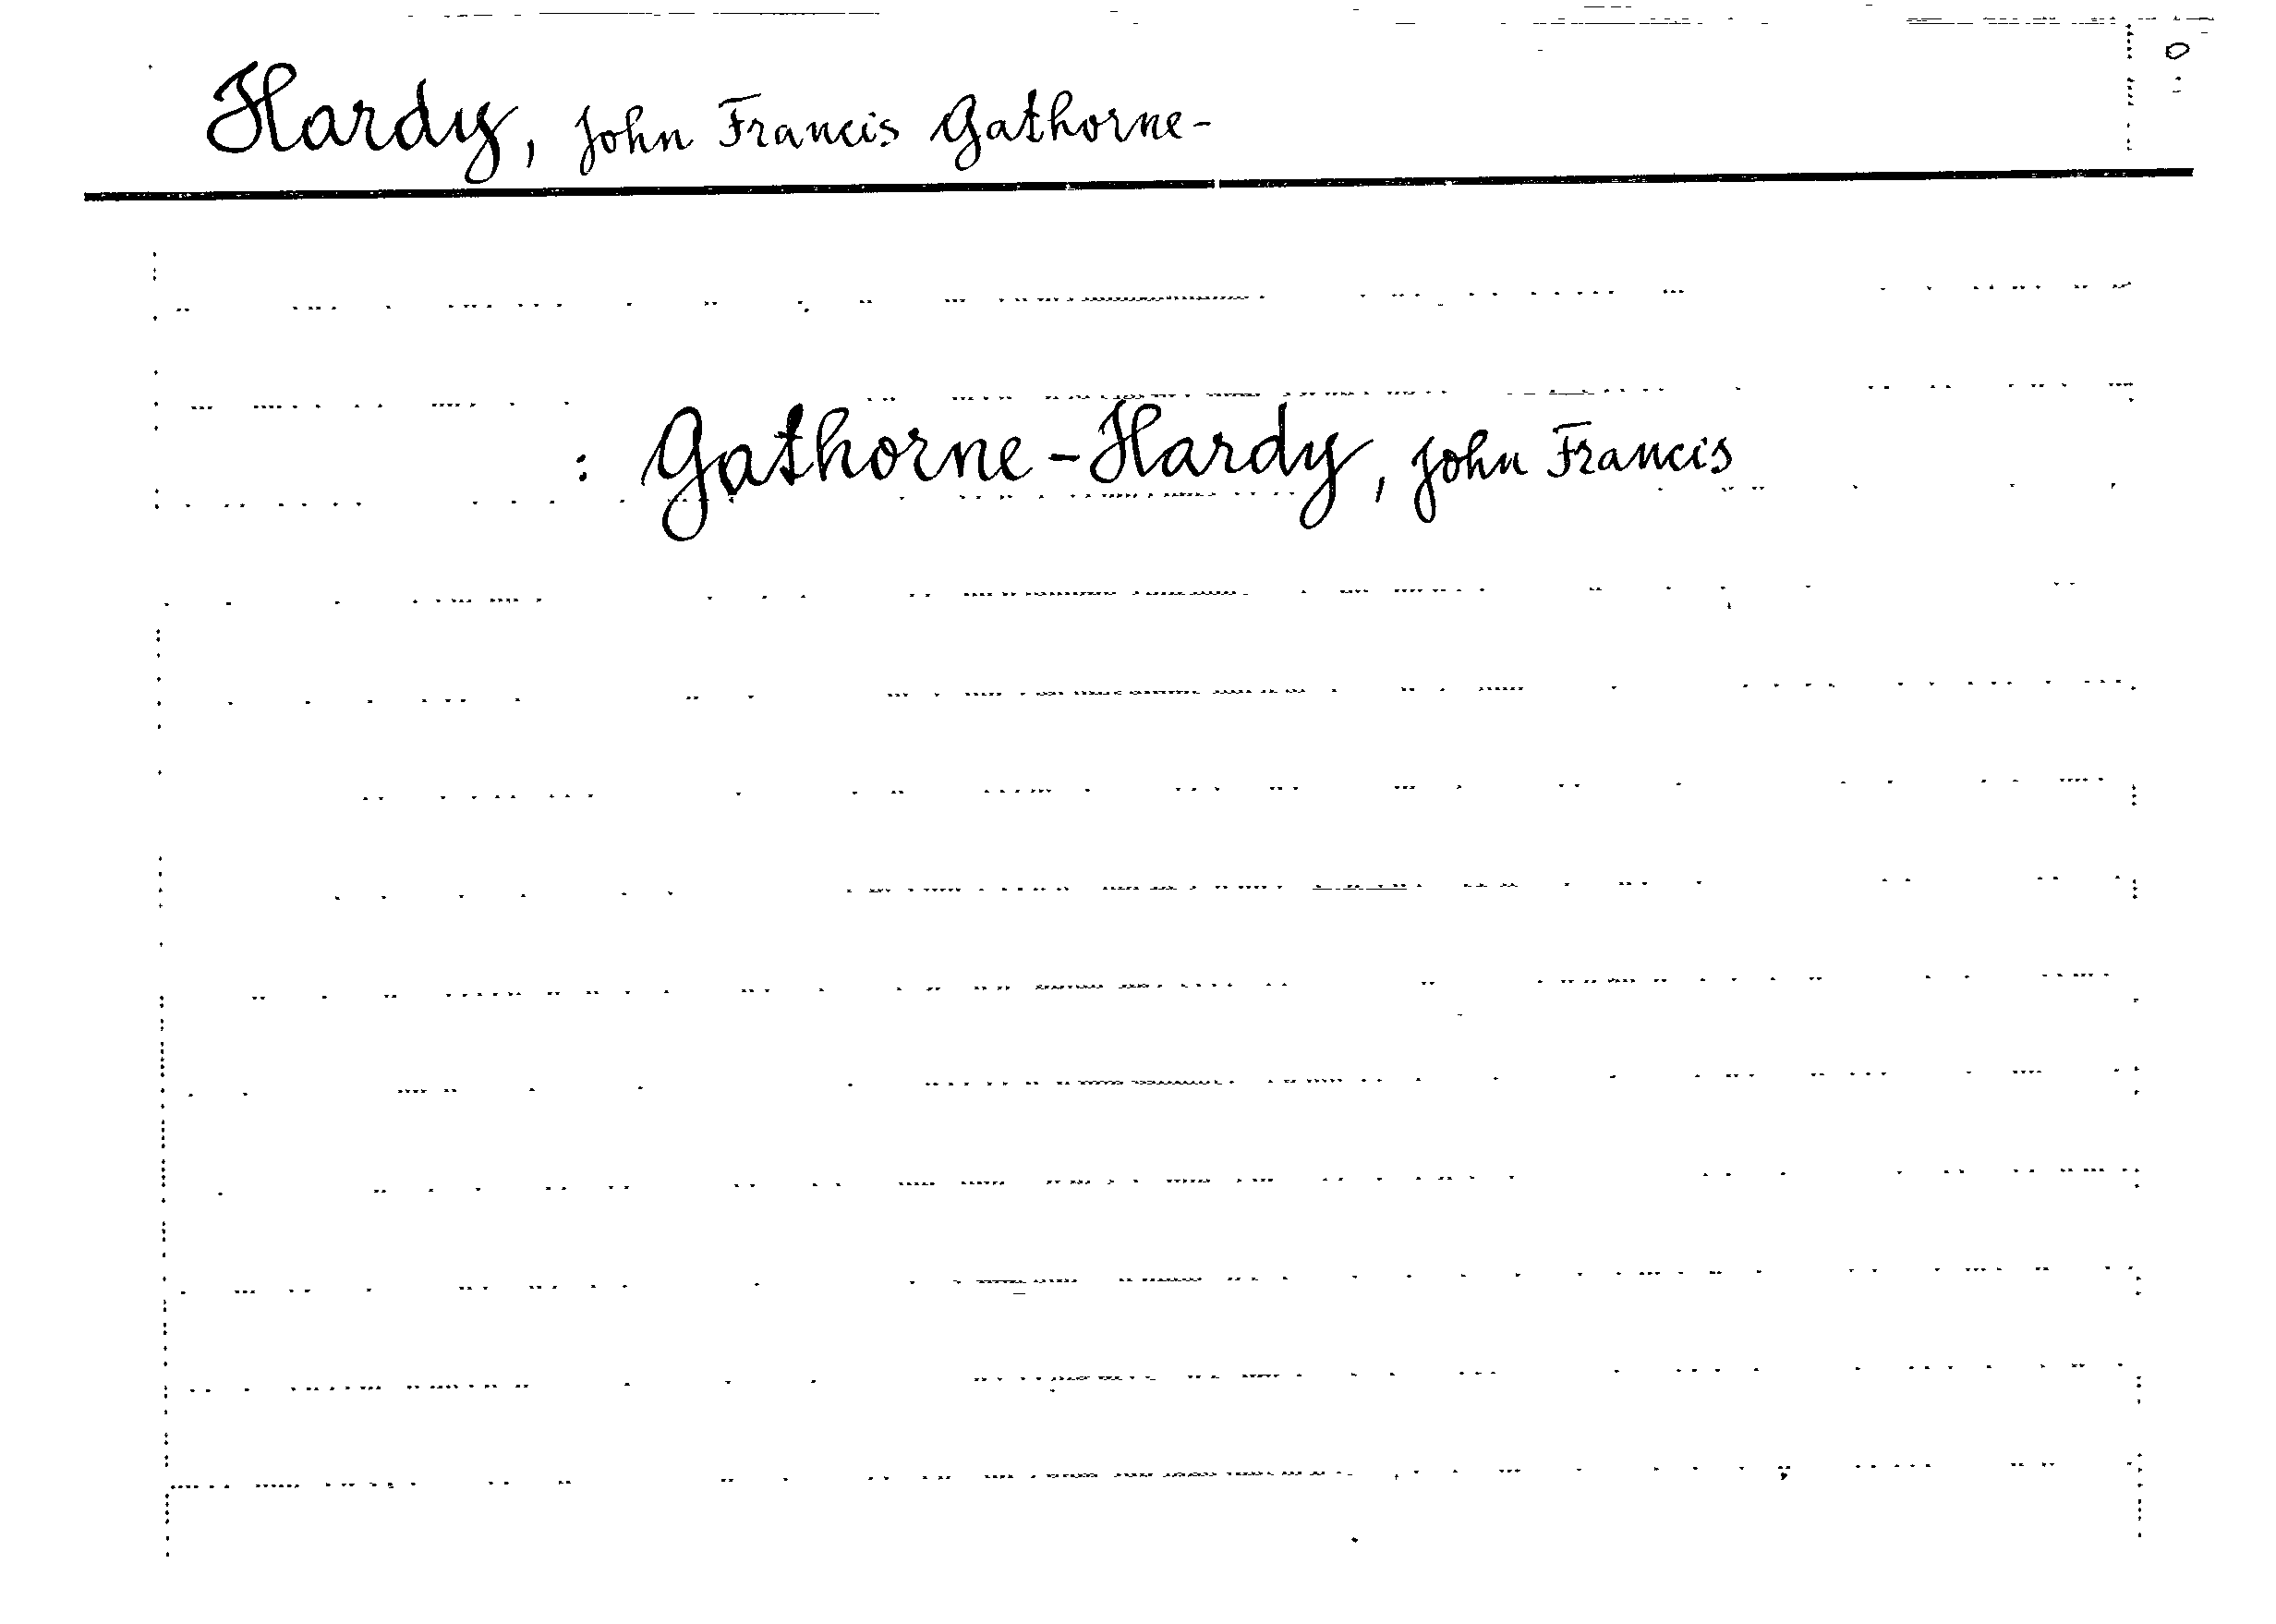 Hardy, John Francis Gathorne-
: Gathorne-Hardy, John Francis